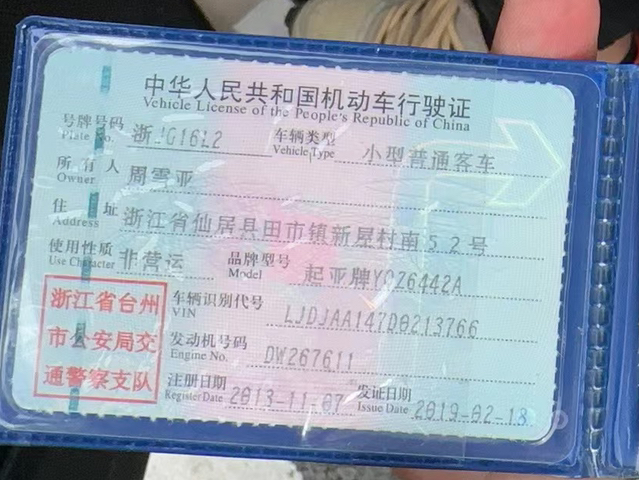 中华人民共和国机动车行驶证
Vehicle License of the People's Republic of China
号牌号码 浙JG16L2 车辆类型 小型普通客车
Plate No. Vehicle Type
所有人 周雪亚
Owner
住址 浙江省仙居县田市镇新屋村南52号
Address
使用性质 非营运 品牌型号 起亚牌YQZ6442A
Use Character Model
浙江省台州
市公安局交
通警察支队
车辆识别代号 LJDJAA147D0213766
VIN
发动机号码 DW267611
Engine No.
注册日期 2013-11-07 发证日期 2019-02-18
Register Date Issue Date